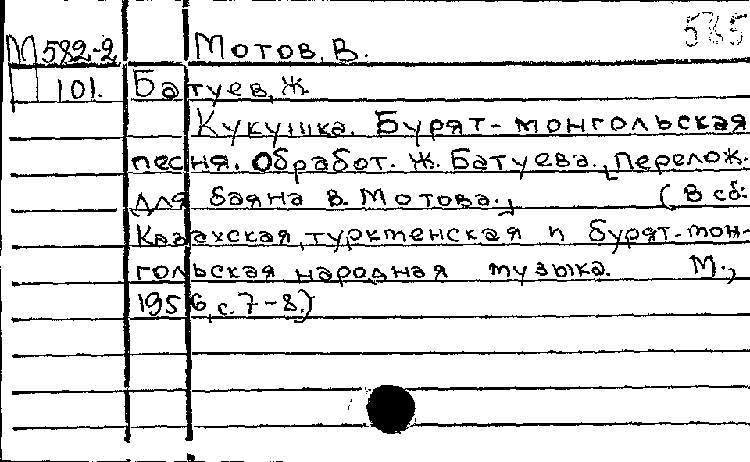 585
М582-2 Мотов, В.
101. Батуев, Ж.
Кукушка. Бурят-монгольская
песня. Обработ. Ж. Батуева., перелож.
для баяна В. Мотова., (В сб:
Казахская, туркменская и бурят-мон-
гольская народная музыка. М.,
1956, с. 7-8.)